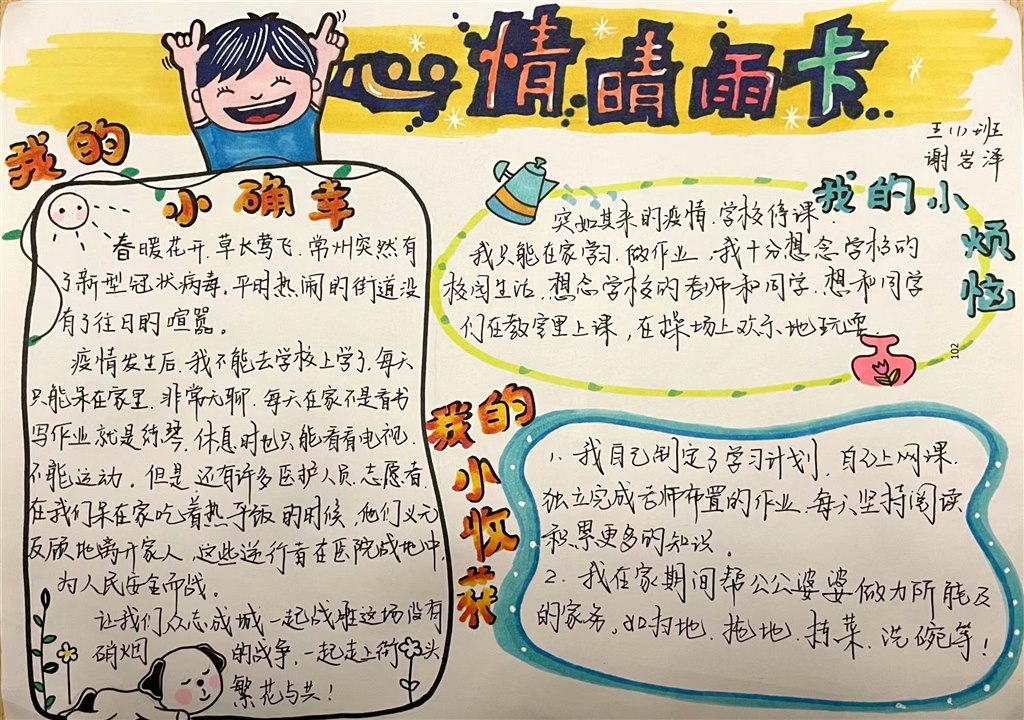 心情晴雨卡
五(1)班
谢岩泽
我的
小确幸
春暖花开,草长莺飞,常州突然有
了新型冠状病毒,平时热闹的街道没
有了往日的喧嚣。
疫情发生后,我不能去学校上学了,每天
只能呆在家里,非常无聊,每天在家不是看书
写作业就是练琴,休息时也只能看看电视,
不能运动。但是还有许多医护人员,志愿者,
在我们呆在家吃着热乎饭的时候,他们义无
反顾地离开家人,这些逆行者在医院战地中,
为人民安全而战。
让我们众志成城一起战胜这场没有
硝烟的战争,一起走上街头
繁花与共!
我的小
烦恼
突如其来的疫情,学校停课,
我只能在家学习,做作业,我十分想念学校的
校园生活,想念学校的老师和同学,想和同学
们在教室里上课,在操场上欢乐地玩耍。
102
我的
小收获
1、我自己制定了学习计划,自己上网课,
独立完成老师布置的作业,每天坚持阅读
积累更多的知识。
2、我在家期间帮公公婆婆做力所能及
的家务,如扫地、拖地、拣菜、洗碗等!